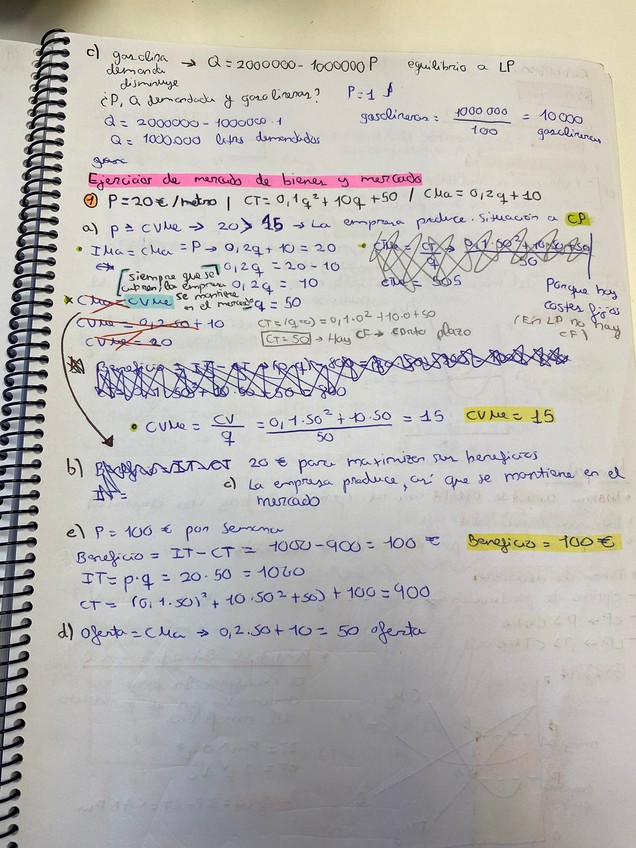 c) gasolina → Q = 2000000 - 1000000 P equilibrio a LP
demanda
disminuye
¿P, Q demandada y gasolineras? P = 1 $
Q = 2000000 - 1000000 · 1
gasolineras = 1000000 / 100 = 10000 gasolineras
Q = 1000.000 litros demandados
Ejercicios de mercado de bienes y mercado
① P = 20 € / metro | CT = 0,1q² + 10q + 50 | CMa = 0,2q + 10
a) P ≥ CVMe → 20 > 15 → La empresa produce. Situación a CP
• IMa = CMa = P → 0,2q + 10 = 20
0,2q = 20 - 10
0,2q = 10
q = 50
Siempre que se cubren la empresa se mantiene en el mercado
CMe = 505
Porque hay
costes fijos
(En LP no hay
CF)
CMa = CVMe
CVMe = 0,2·50 + 10
CVMe = 20
CT = (q=0) = 0,1·0² + 10·0 + 50
CT = 50 → Hay CF → corto plazo
• CVMe = CV / q = 0,1·50² + 10·50 / 50 = 15 CVMe = 15
b) 20 € para maximizar sus beneficios
c) La empresa produce, así que se mantiene en el
mercado
IT =
e) P = 100 € por semana
Beneficio = IT - CT = 1000 - 900 = 100 € Beneficio = 100 €
IT = p · q = 20 · 50 = 1000
CT = (0,1·50)² + 10·50² + 50) + 100 = 900
d) Oferta = CMa → 0,2·50 + 10 = 50 oferta